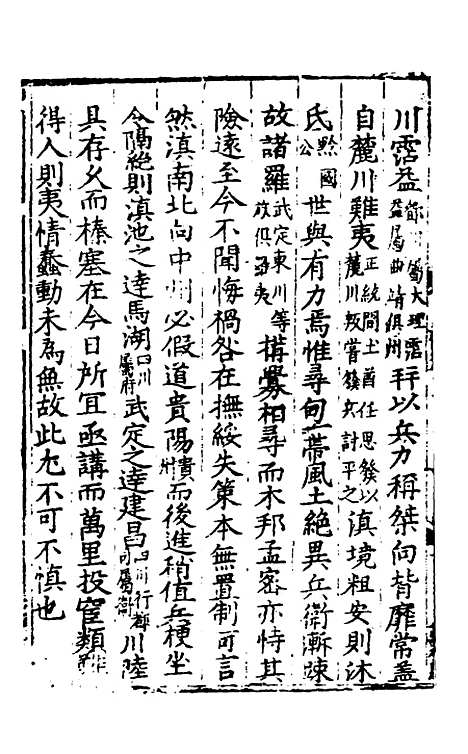 川霑益鄧川屬大理霑益屬曲靖俱州秤以兵力稱桀向皆靡常蓋
自麓川難夷正統間土酋任思發以麓川叛嘗發兵討平之滇境粗安則沐
氏黔國公世與有力焉惟尋甸一帶風土絕異兵衛漸竦
故諸羅武定東川等族俱羅夷搆釁相尋而木邦孟密亦恃其
險遠至今不聞悔禍咎在撫綏失策本無置制可言
然滇南北向中州必假道貴陽貴州而後進稍值兵梗坐
令隔絕則滇池之達馬湖四川屬府武定之達建昌四川行都司屬衛川陸
具存久而榛塞在今日所宜亟講而萬里投官類非
得人則夷情蠢動未為無故此尤不可不慎也